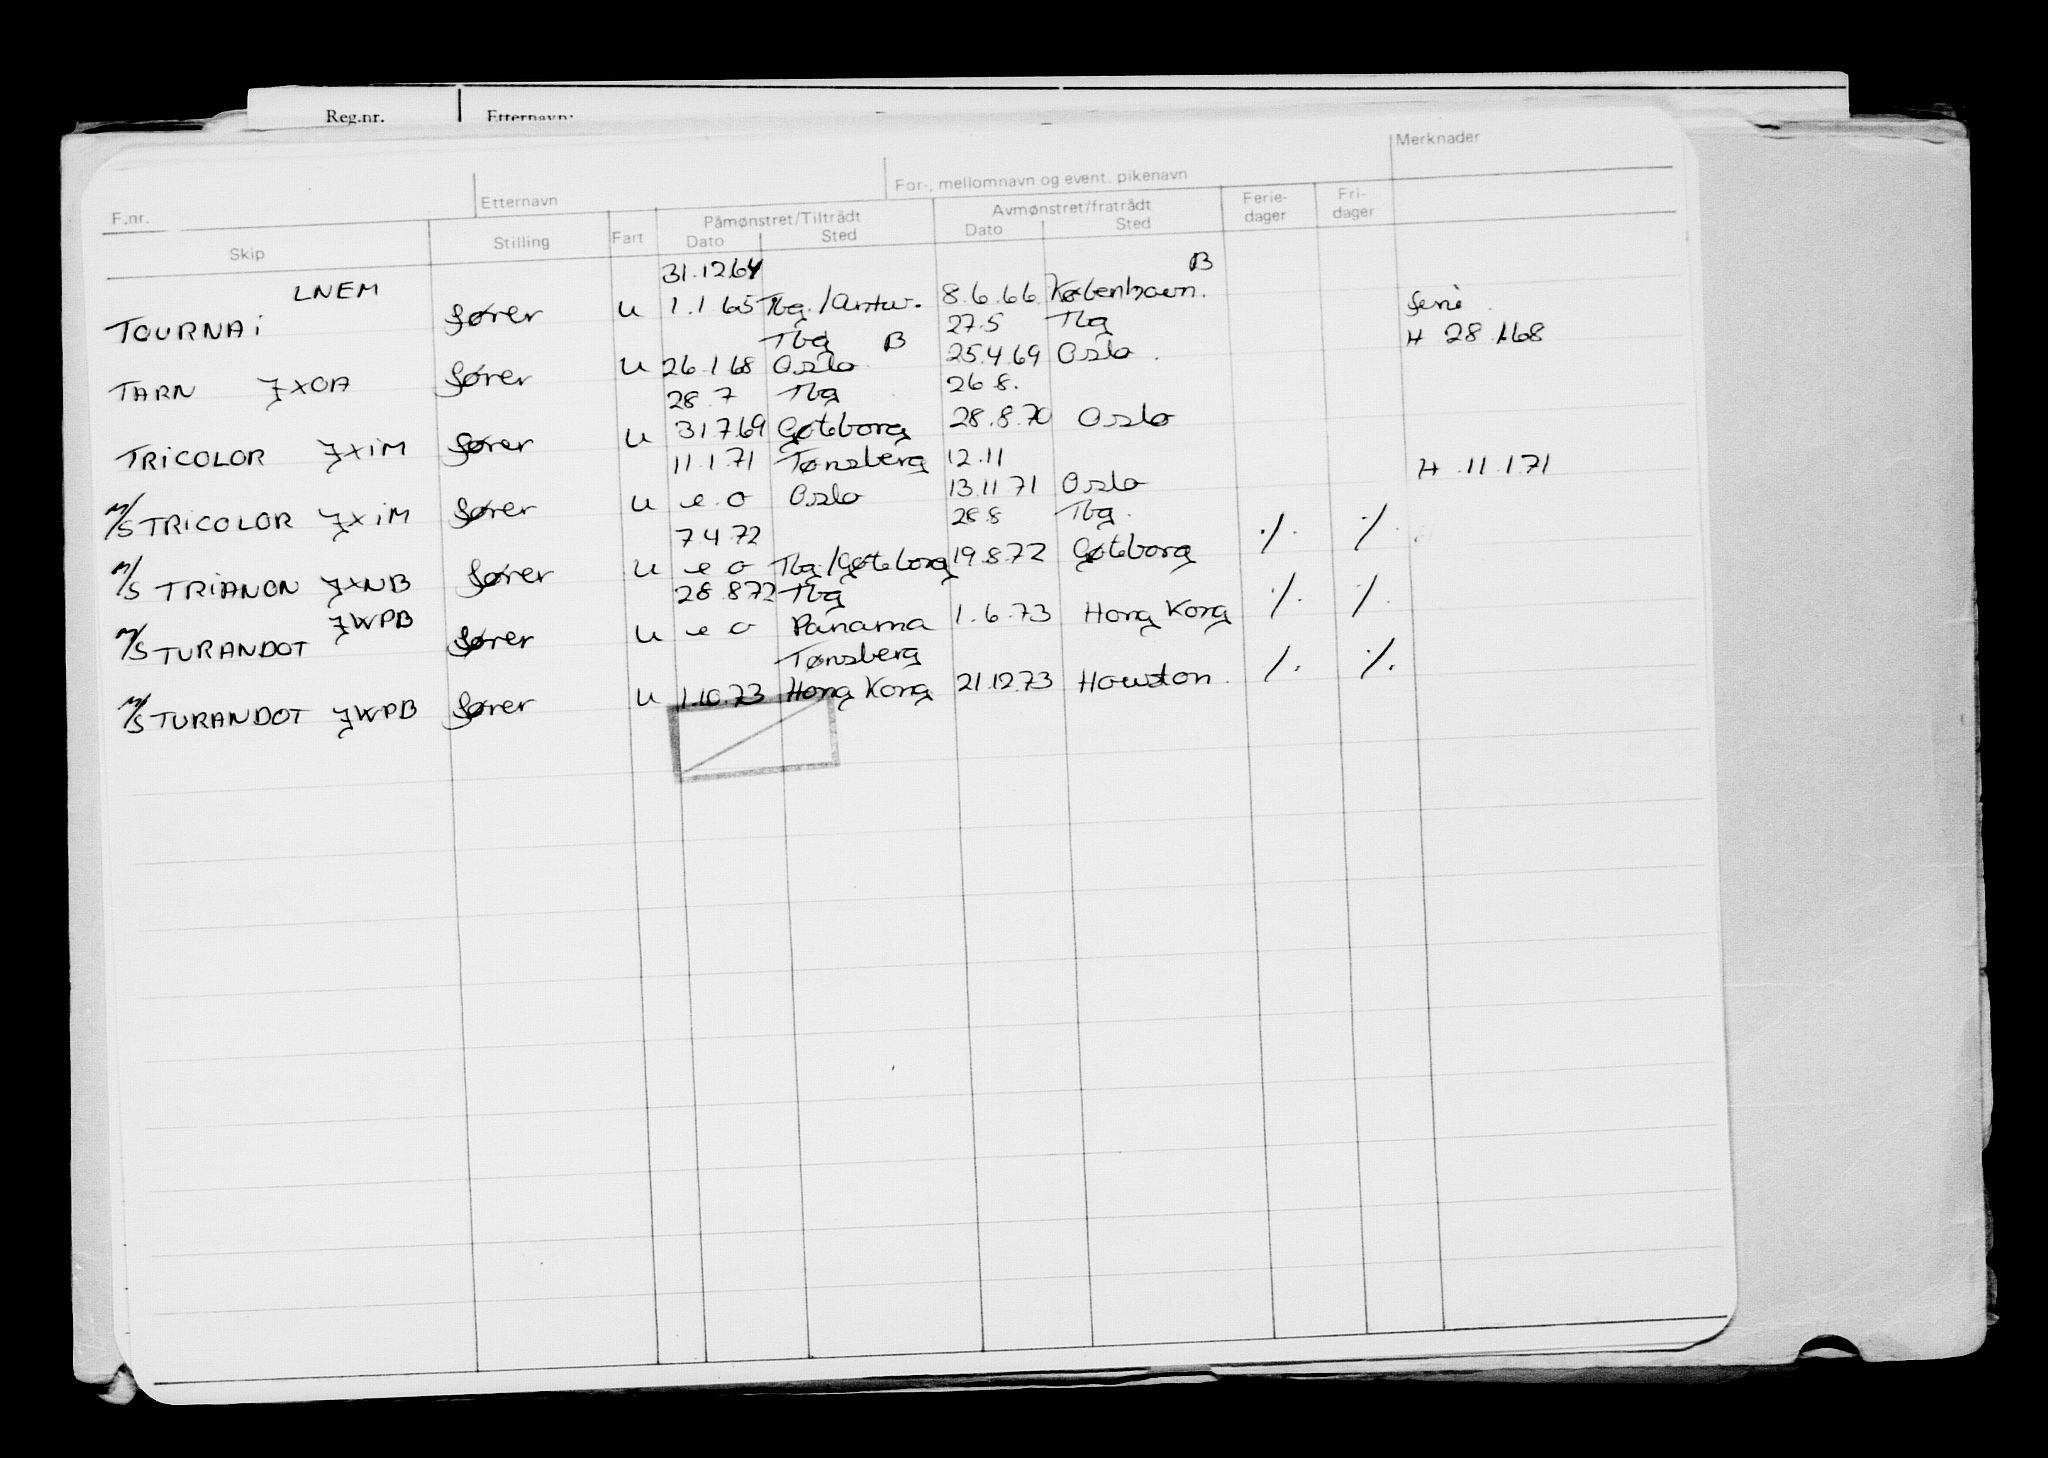 Reg.nr. Etternavn:
Merknader
F.nr. Etternavn For-, mellomnavn og event. pikenavn
Skip Stilling Fart Påmønstret/Tiltrådt Avmønstret/fratrådt Ferie-dager Fri-dager
Dato Sted Dato Sted
31.12.64 B
LNEM
TOURNAi fører u 1.1.65 Tbg./Antw. 8.6.66 København. ferie.
Tbg B 27.5 Tbg H 28.1.68
TARN JXOA fører u 26.1.68 Oslo. 25.4.69 Oslo.
28.7 Tbg 26.8.
TRiCOLOR JXiM fører u 31.7.69 Gøteborg 28.8.70 Oslo
11.1.71 Tønsberg 12.11 H 11.1.71
M/S TRiCOLOR JXiM fører u e.o Oslo 13.11.71 Oslo
7.4.72 28.8 Tbg.
M/S TRiANON JXNB fører u e o Tbg/Gøteborg 19.8.72 Gøteborg ./. ./.
28.8.72 Tbg
JWPB
M/S TURANDOT fører u e o Panama 1.6.73 Hong Kong ./. ./.
Tønsberg
M/S TURANDOT JWPB fører u 1.10.73 Hong Kong 21.12.73 Houston. ./. ./.